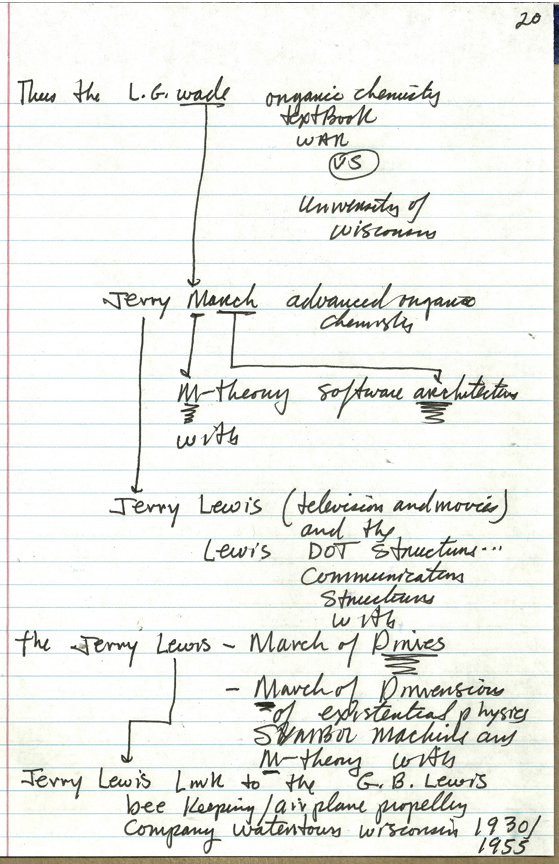 20
Thus the L.G. wade organic chemistry
textBook
WAR
VS
University of
Wisconsin
Jerry March advanced organic
chemistry
M-theory software architecture
with
Jerry Lewis (television and movies)
and the
Lewis DOT Structure...
Communication
Structures
with
the Jerry Lewis - March of Dimes
- March of Dimensions
of existential physics
SYMBOL Machine and
M-theory with
Jerry Lewis Link to the G.B. Lewis
bee keeping/airplane propeller
Company watertown wisconsin 1930/
1955